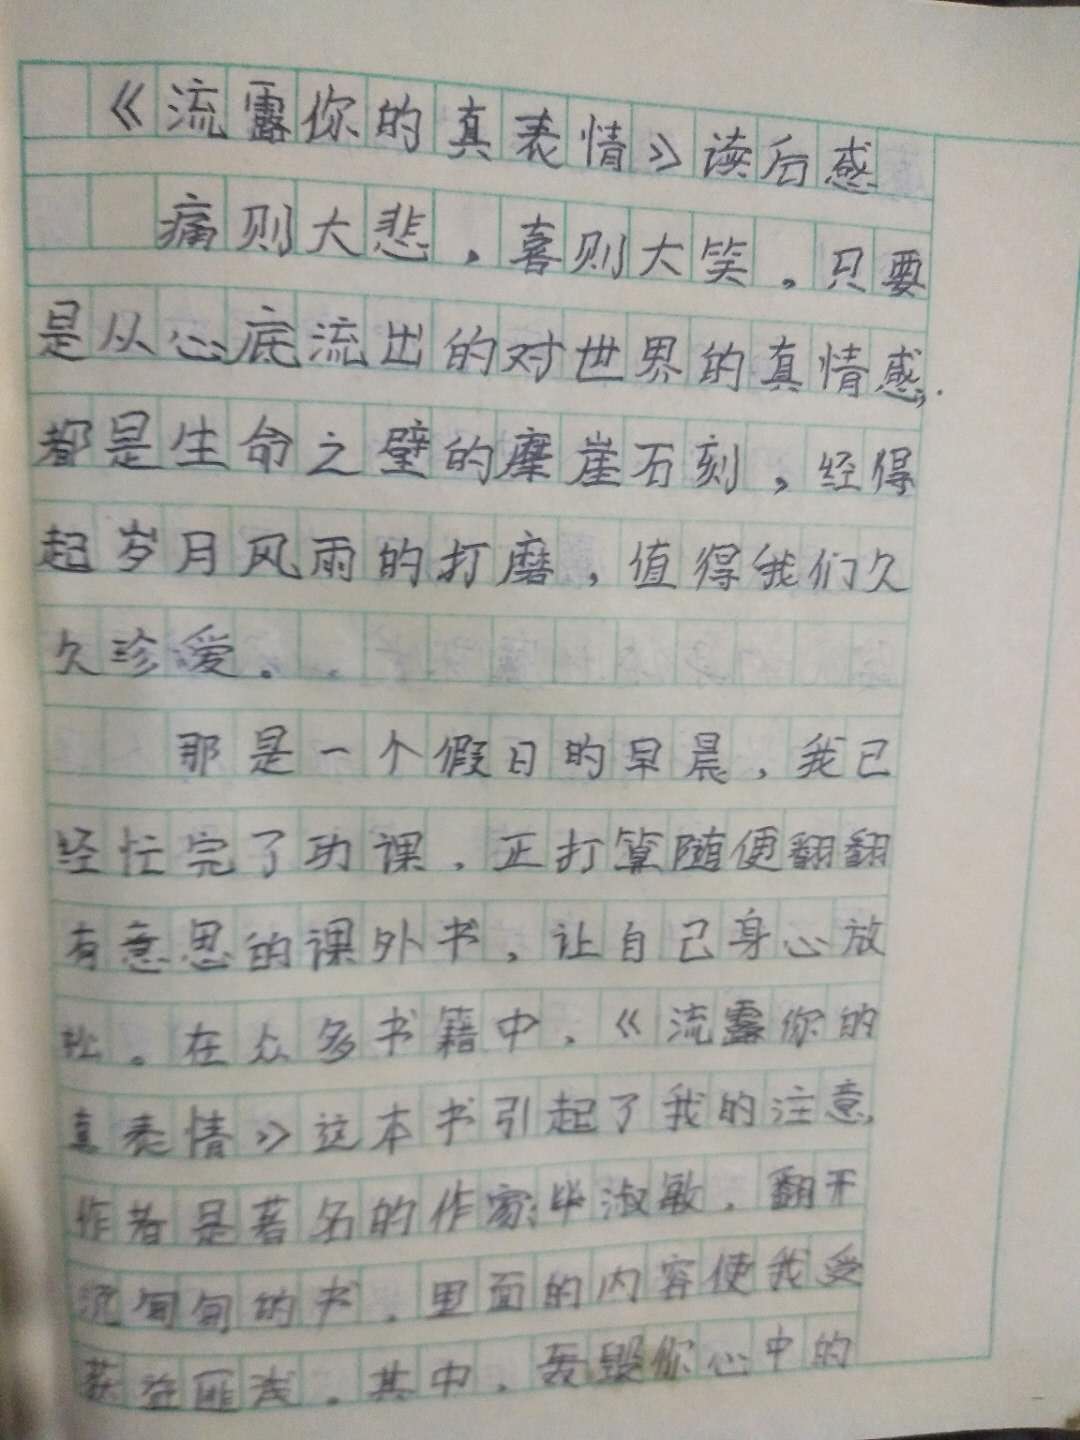 《流露你的真表情》读后感
痛则大悲，喜则大笑。只要
是从心底流出的对世界的真情感，
都是生命之壁的摩崖石刻，经得
起岁月风雨的打磨，值得我们久
久珍爱。
那是一个假日的早晨，我已
经忙完了功课，正打算随便翻翻
有意思的课外书，让自己身心放
松。在众多书籍中，《流露你的
真表情》这本书引起了我的注意，
作者是著名的作家毕淑敏，翻开
沉甸甸的书，里面的内容使我受
获益匪浅。其中，毁你心中的